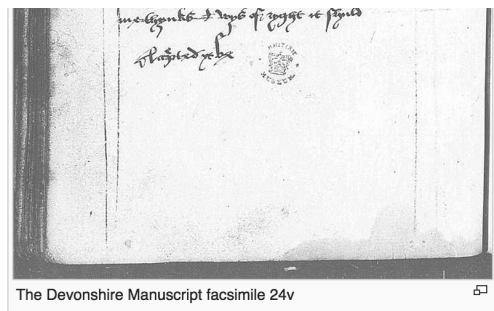 me thynks I wys of ryght it shuld
be
BRITISH
MUSEUM
The Devonshire Manuscript facsimile 24v